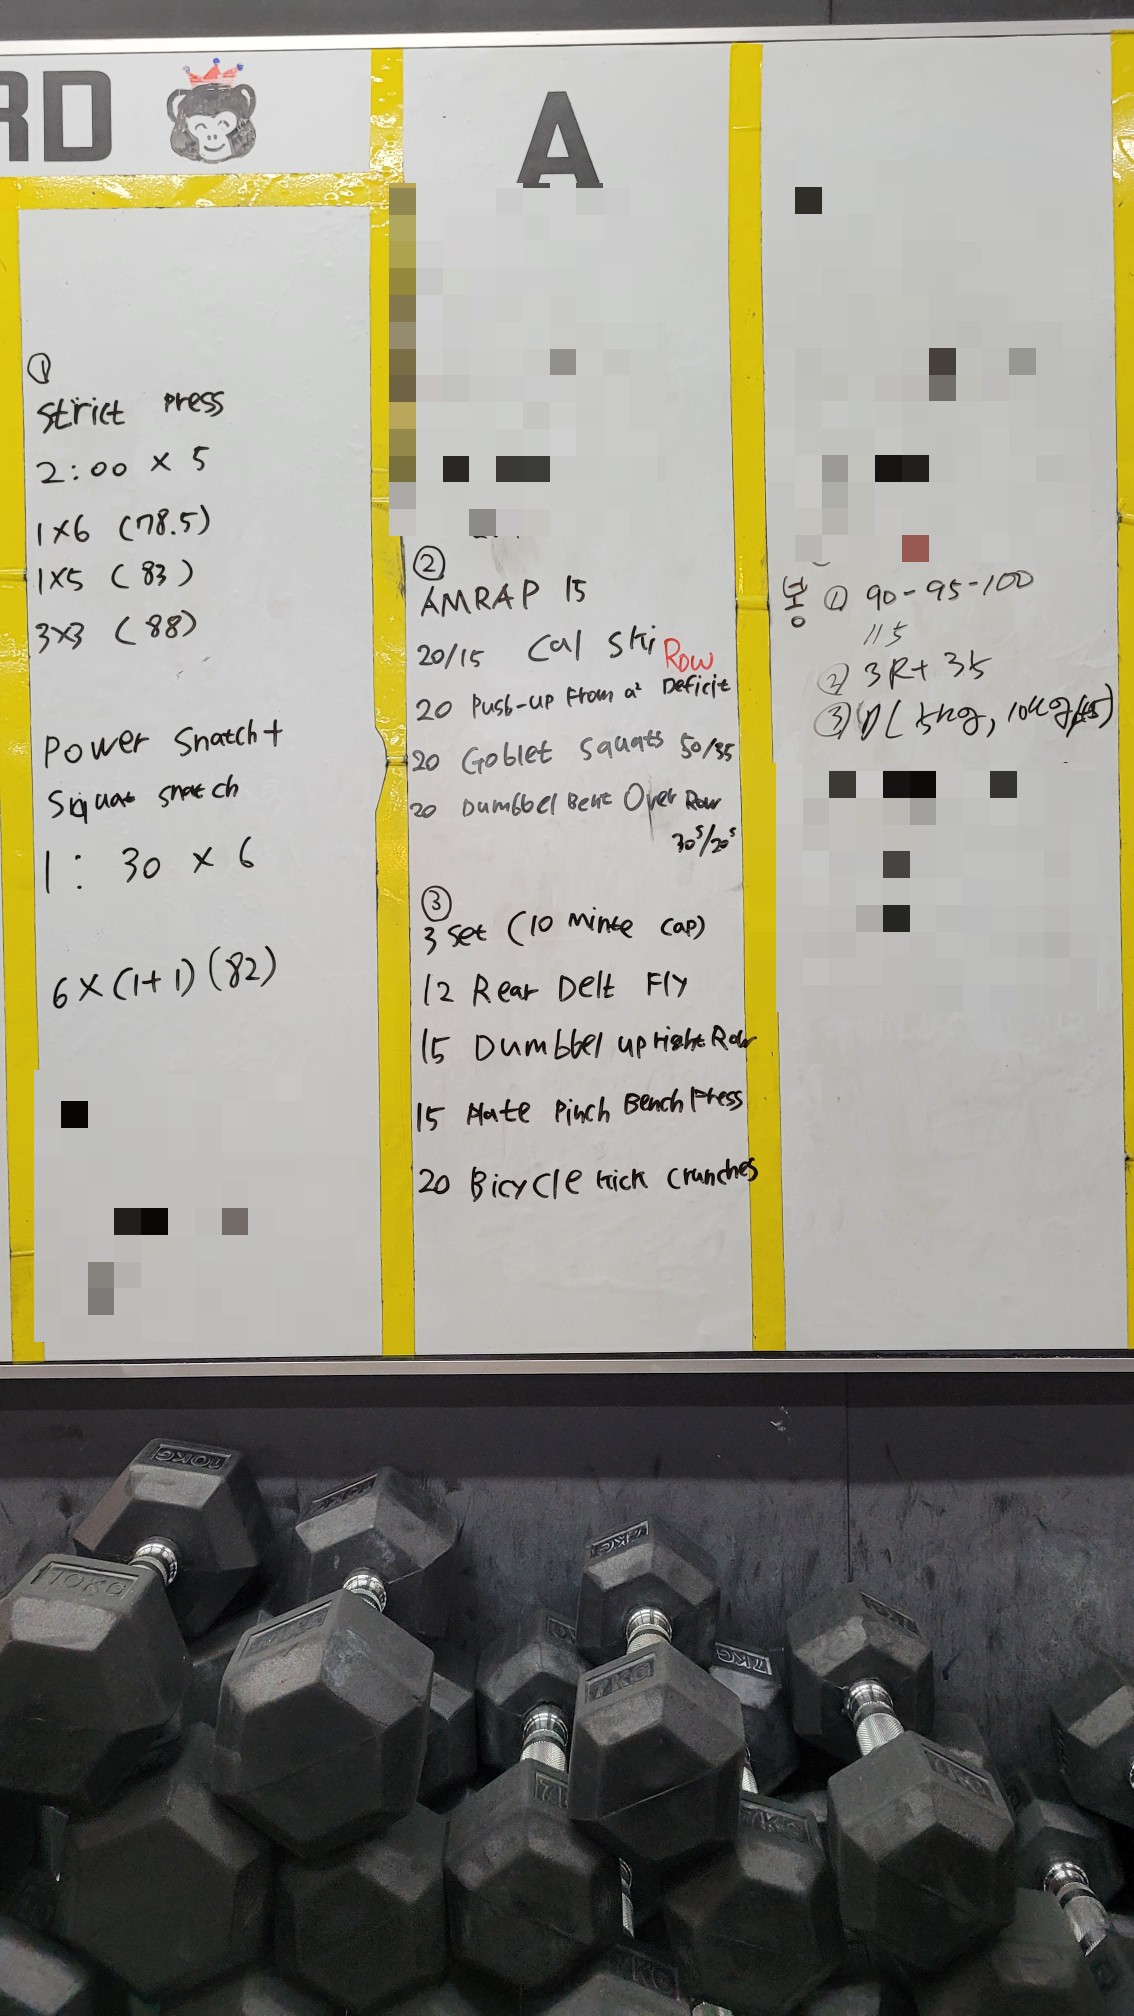 RD
①
Strict Press
2:00 x 5
1x6 (78.5)
1x5 (83)
3x3 (88)
Power Snatch+
Squat snatch
1: 30 x 6
6x(1+1)(82)
A
②
AMRAP 15
20/15 Cal Ski Row
20 Push-up From a² Deficit
20 Goblet Squats 50/35
20 Dumbbel Bent Over Row
30ˢ/20ˢ
③
3 Set (10 Minte Cap)
12 Rear Delt Fly
15 Dumbbel upright Row
15 Plate Pinch Bench Press
20 Bicycle kick crunches
봉 ① 90-95-100
115
② 3R+ 35
③ (5kg, 10kg
10KG
10KG
7KG
7KG
7KG
7KG
7KG